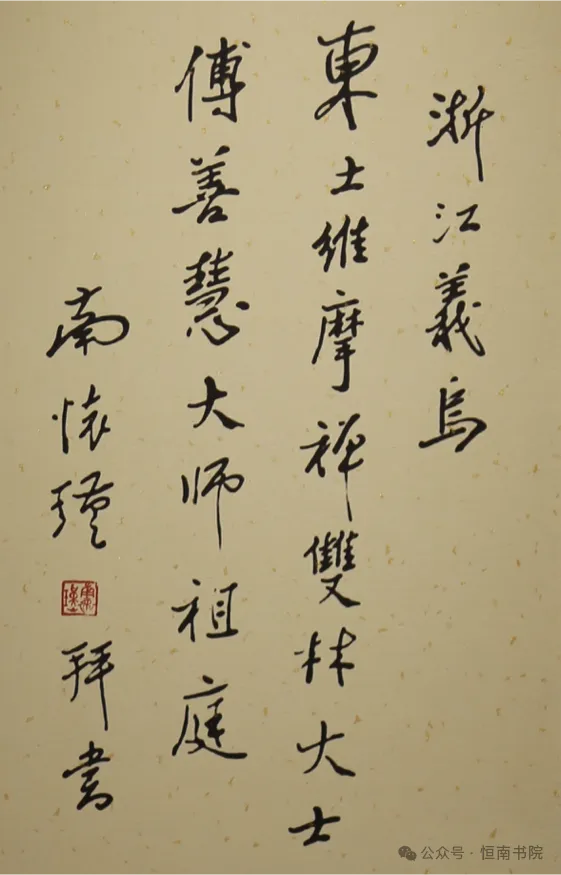 浙江義烏
東土維摩禅雙林大士
傅善慧大师祖庭
南懐瑾
拜書
公众号·恒南书院